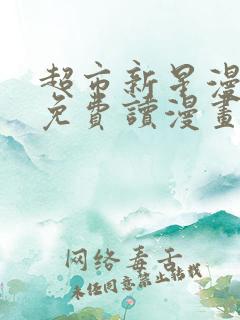 超市新星漫
免費讀漫畫
网络毒舌
未经同意禁止转载